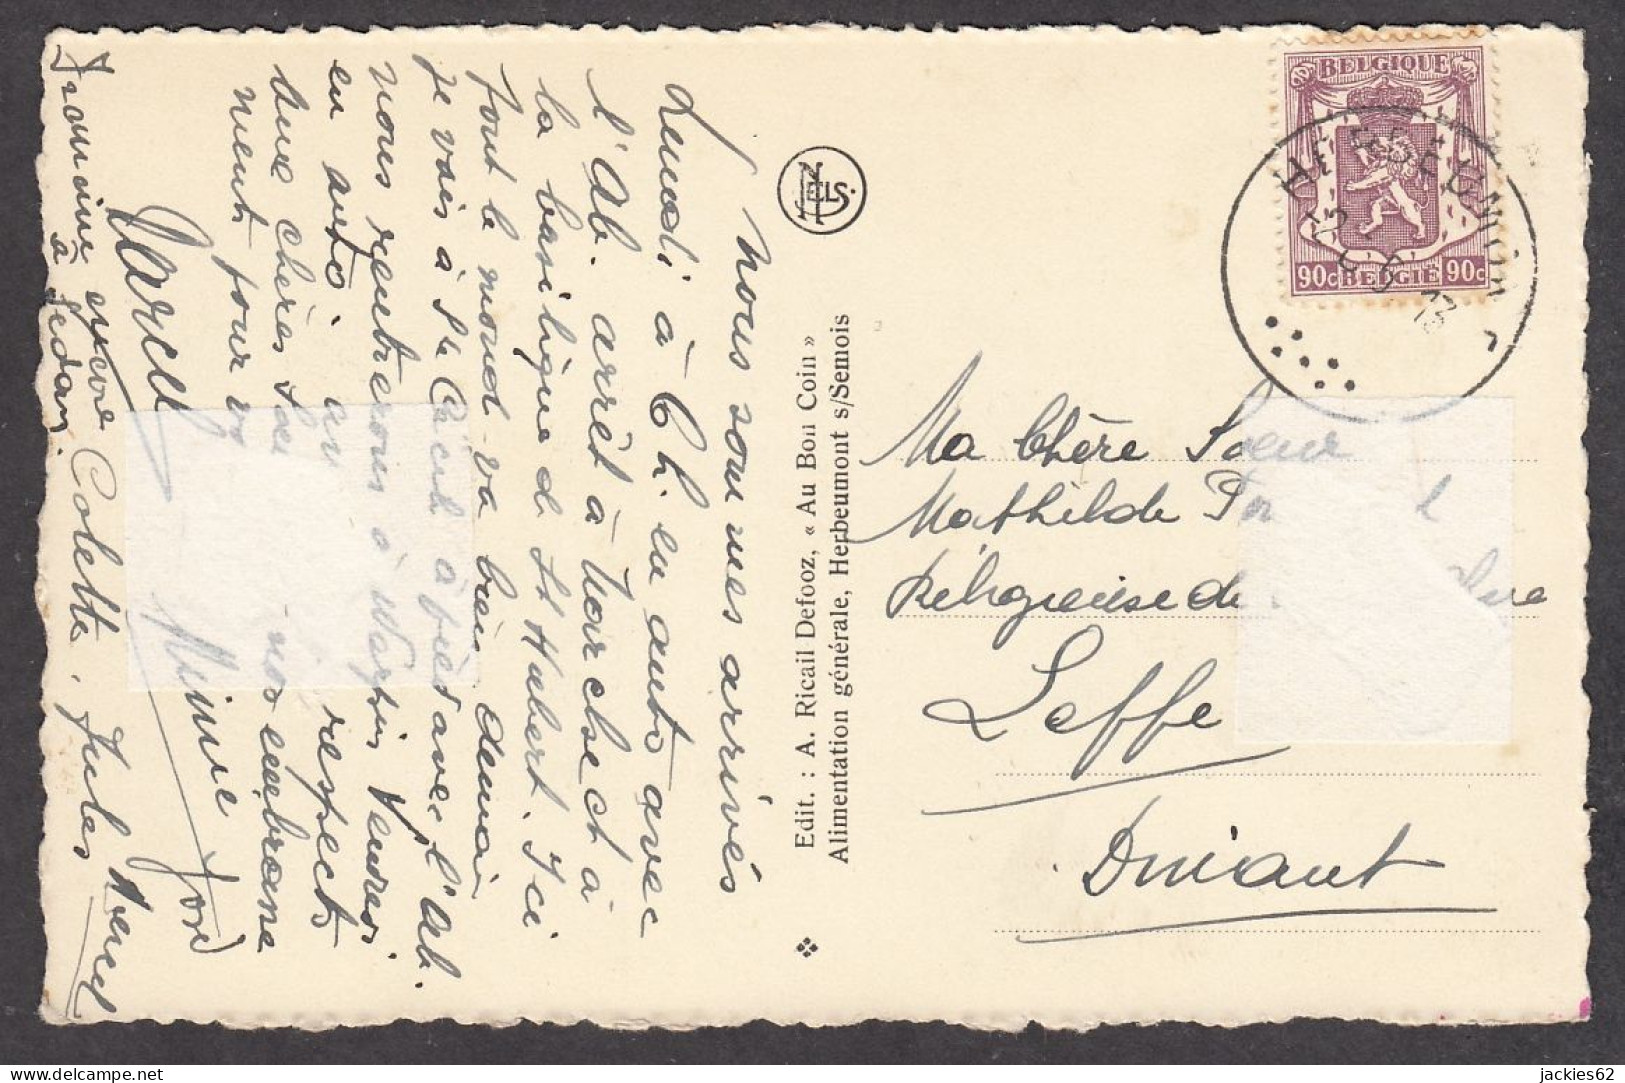 Nous sommes arrivés
Lundi à 6 h. en auto avec
l'Ab. arrêt à Marche et à
la basilique de St Hubert. Ici
tout le monde va bien demain
je vais à Ste Cécile à pied avec l'Ab.
nous rentrerons à Vendredi
en auto. au respect
Aux chères nos embrasse
ment pour
Marcel Mimie José
Francine encore Colette. Jules Marcel
à Sedan
NELS
Edit. : A. Ricail Defooz, « Au Bon Coin »
Alimentation générale, Herbeumont s/Semois
BELGIQUE
90c BELGIË 90c
HERBEUMONT
Ma Chère Sœur
Mathilde
Religieuse de
Leffe
Dinant
jackies62